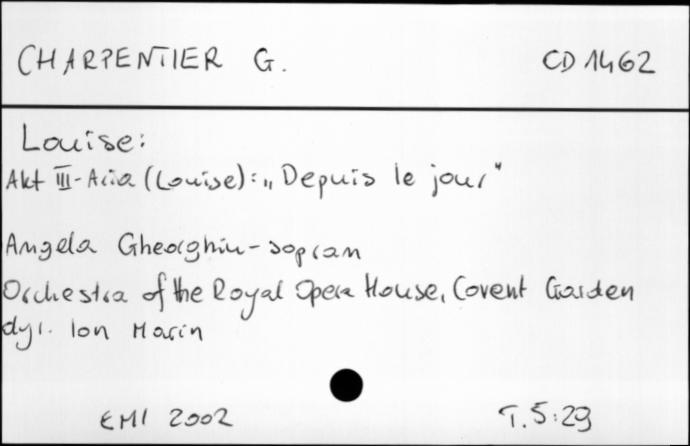 CHARPENTIER G. CD 1462
Louise:
Akt III - Aria (Louise): „Depuis le jour"
Angela Gheorghiu - sopran
Orchestra of the Royal Opera House, Covent Garden
dyr. Ion Marin
EMI 2002 T. 5:29